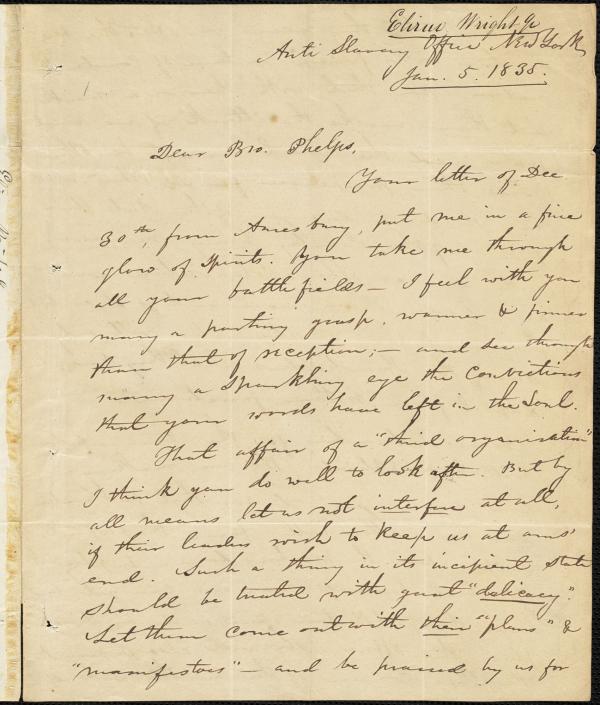 Elizur Wright Jr
Anti Slavery Office New York
Jan. 5. 1835.
Dear Bro. Phelps,
Your letter of Dec
30th, from Amesbury, put me in a fine
glow of spirits. You take me through
all your battlefields — I feel with you
many a parting grasp, warmer & firmer
than that of reception; — and see through
many a sparkling eye the convictions
that your words have left in the soul.
That affair of a "third organization"
I think you do well to look after. But by
all means let us not interfere at all,
if their leaders wish to keep us at arms'
end. Such a thing in its incipient state
should be treated with great "delicacy".
Let them come out with their "plans" &
"manifestoes" — and be praised by us for